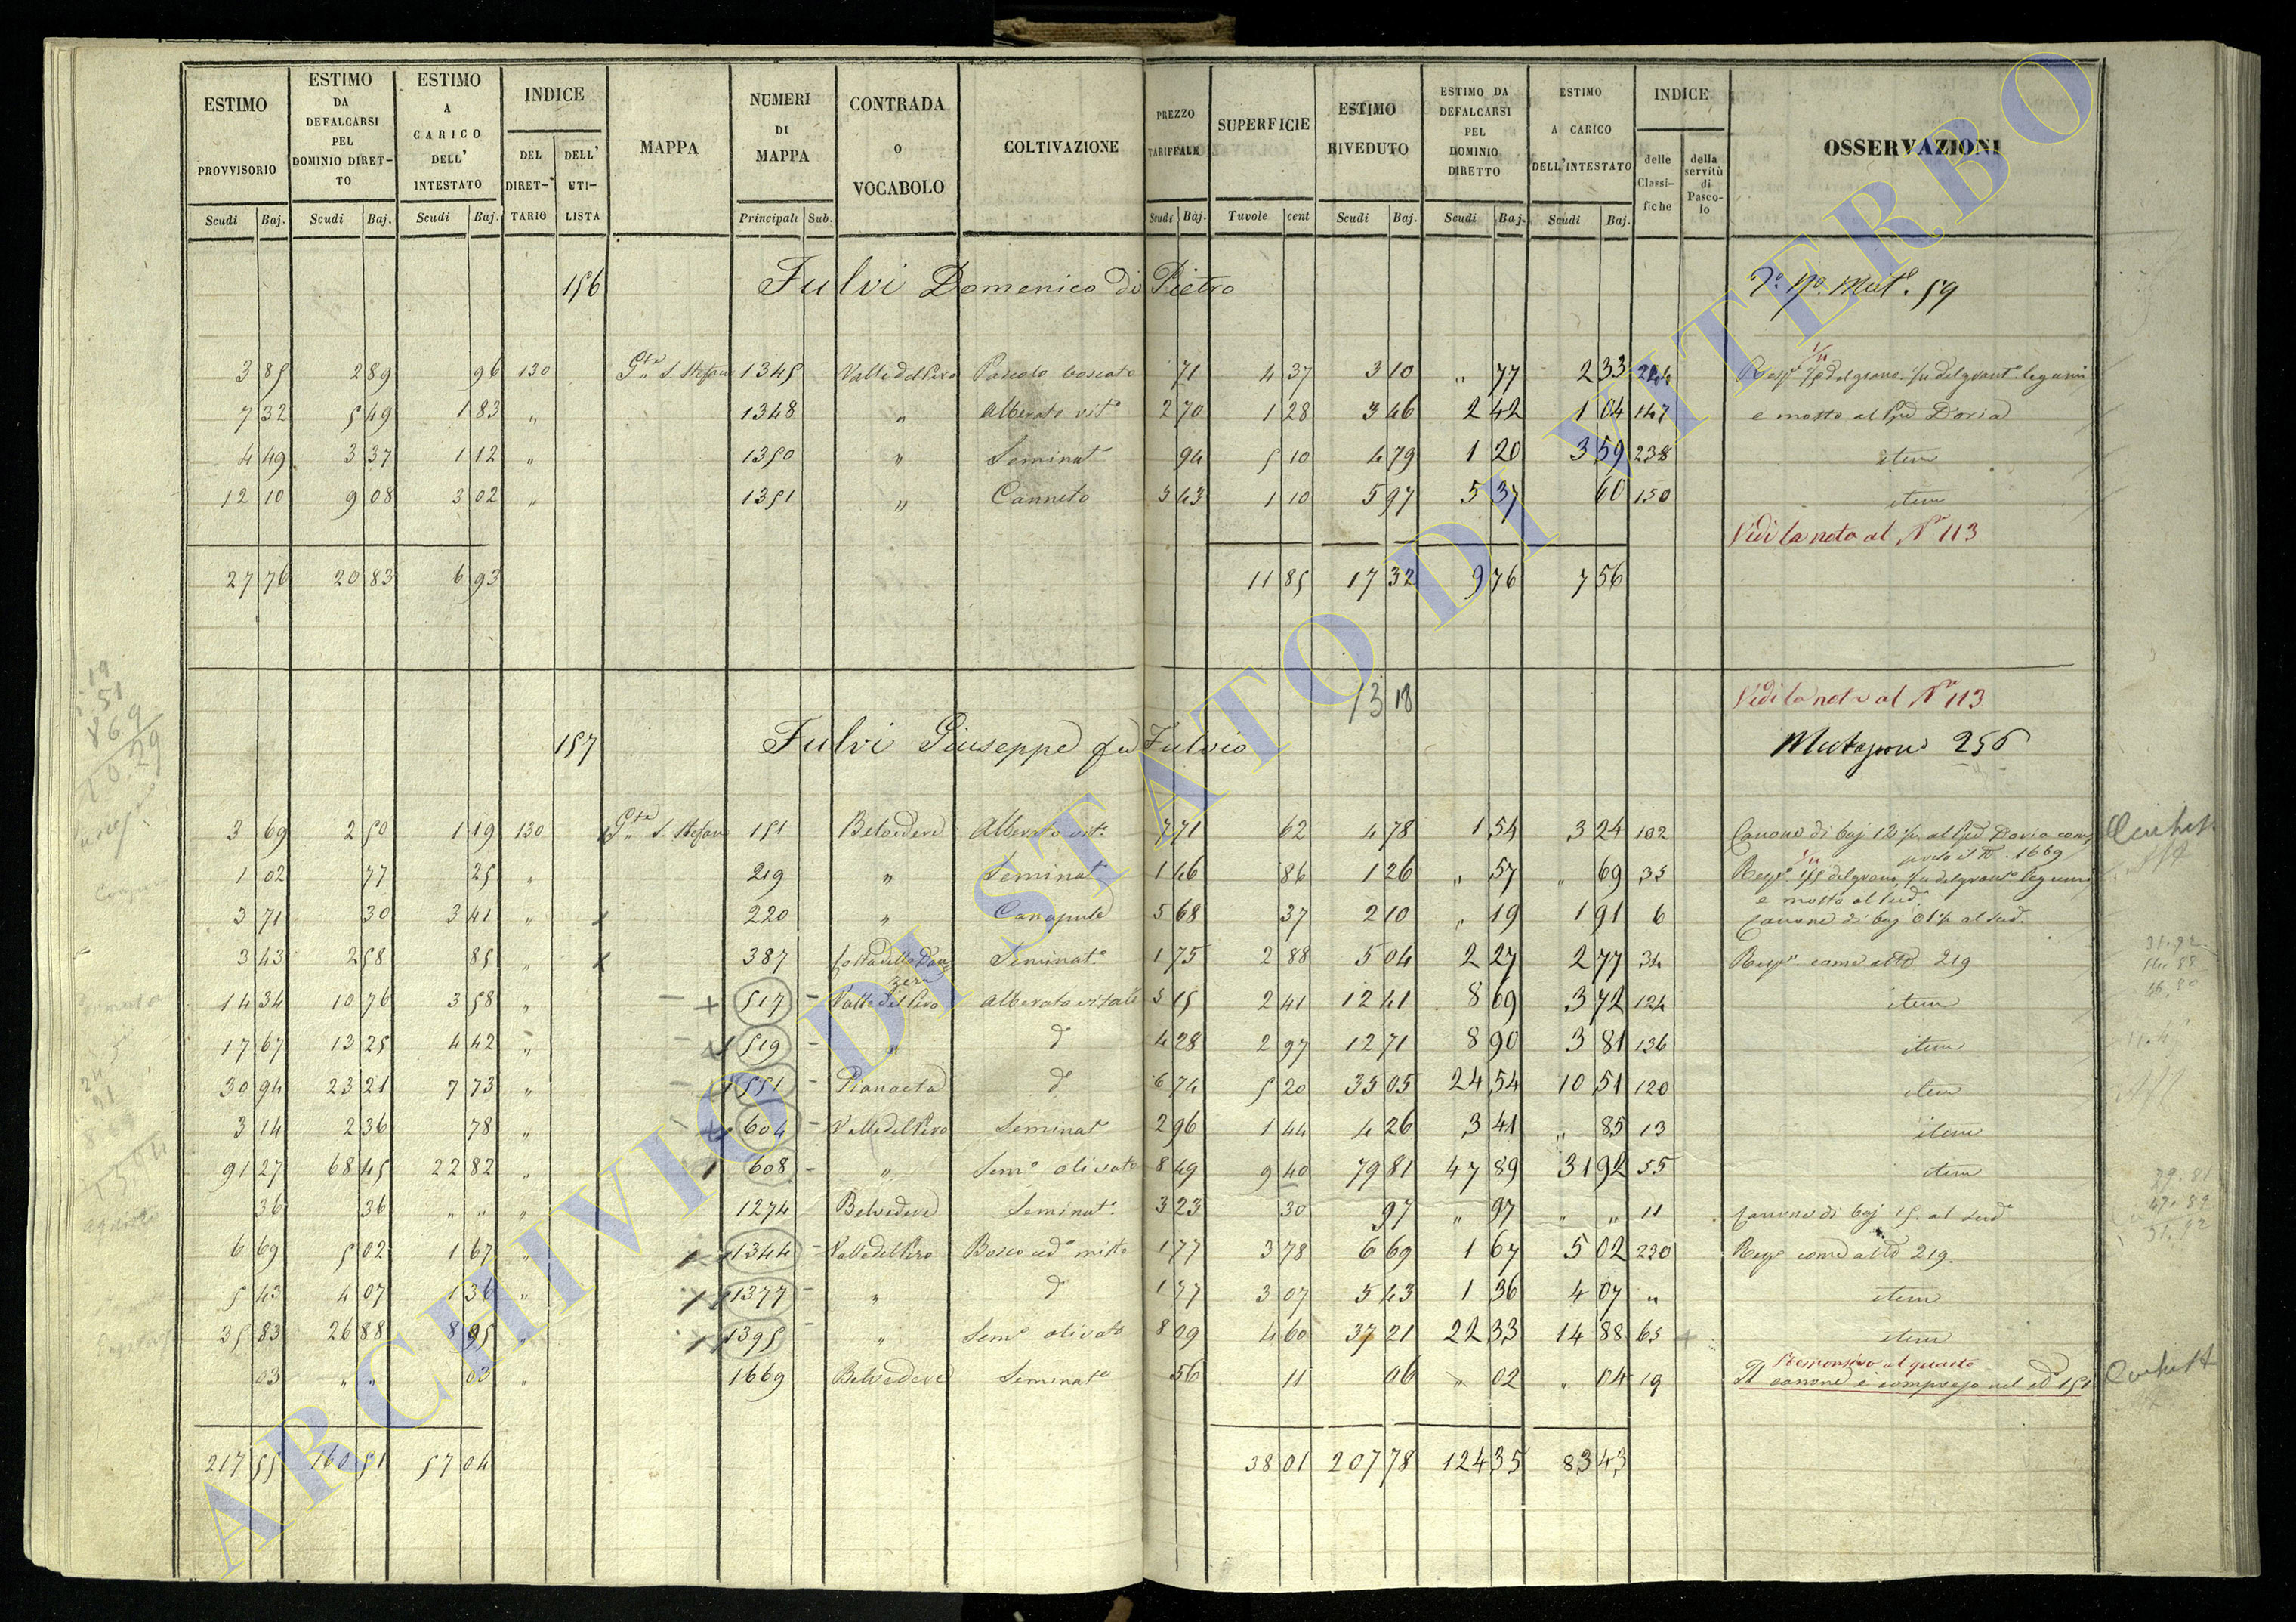 ESTIMO PROVVISORIO Scudi Baj. | ESTIMO DA DEFALCARSI PEL DOMINIO DIRET-TO Scudi Baj. | ESTIMO A CARICO DELL' INTESTATO Scudi Baj. | INDICE DEL DIRET-TARIO | DELL' UTI-LISTA | MAPPA | NUMERI DI MAPPA Principali Sub. | CONTRADA O VOCABOLO | COLTIVAZIONE | PREZZO TARIFFALE Scudi Baj. | SUPERFICIE Tavole cent | ESTIMO RIVEDUTO Scudi Baj. | ESTIMO DA DEFALCARSI PEL DOMINIO DIRETTO Scudi Baj. | ESTIMO A CARICO DELL'INTESTATO Scudi Baj. | INDICE delle Classi-fiche | della servitù di Pasco-lo | OSSERVAZIONI
156 Fulvi Domenico di Pietro 59
3 85 2 89 96 130 S. Stefano 1345 Valle del Pero Pascolo boscato 71 4 37 3 10 „ 77 2 33
7 32 5 49 1 83 „ 1348 „ Alberato vit.º 2 70 1 28 3 46 2 42 1 04 147 e mosto al D'oria
4 49 3 37 1 12 „ 1350 „ Seminat 94 5 10 4 79 1 20 3 59 238 item
12 10 9 08 3 02 „ 1351 „ Canneto 5 43 1 10 5 97 5 37 60 150 item
Vedi la nota al Nº 113
27 76 20 83 6 93 11 85 17 32 9 76 7 56
13 18 Vedi la nota al Nº 113
157 Fulvi Giuseppe fu Fulvio 256
3 69 2 50 1 19 130 S. Stefano 151 Belvedere Alberato vit.º 7 71 62 4 78 1 54 3 24 102 Canone di baj 12 al Doria
1669
1 02 77 25 „ 219 „ Seminat 1 46 86 1 26 „ 57 „ 69 35
e mosto al sud.
3 71 30 3 41 „ 220 „ Canapule 5 68 37 2 10 „ 19 1 91 6 Canone di baj al sud.
3 43 2 58 85 „ 387 Seminat.º 1 75 2 88 5 04 2 27 2 77 34 come al Nº 219
14 34 10 76 3 58 „ 517 Valle del Pero Alberato vitato 5 15 2 41 12 41 8 69 3 72 124 item
17 67 13 25 4 42 „ 519 „ dº 4 28 2 97 12 71 8 90 3 81 136 item
30 94 23 21 7 73 „ 551 dº 6 74 5 20 35 05 24 54 10 51 120 item
3 14 2 36 78 „ 604 Valle del Pero Seminat 2 96 1 44 4 26 3 41 „ 85 13 item
91 27 68 45 22 82 „ 608 „ Sem.º olivato 8 49 9 40 79 81 47 89 31 92 55 item
36 36 „ „ „ 1274 Belvedere Seminat.º 3 23 30 97 „ 97 „ „ 11 Canone di baj 15 al sud.º
6 69 5 02 1 67 „ 1344 Valle del Pero Bosco ced.º misto 1 77 3 78 6 69 1 67 5 02 230 come al Nº 219.
5 43 4 07 1 36 „ 1377 „ dº 1 77 3 07 5 43 1 36 4 07 „ item
35 83 26 88 8 95 „ 1395 „ Sem.º olivato 8 09 4 60 37 21 22 33 14 88 65 item
03 „ „ 03 „ 1669 Belvedere Seminat.º 56 11 06 „ 02 „ 04 19 Il canone è compreso nel Nº 151
217 55 160 51 57 04 38 01 207 78 124 35 83 43
ARCHIVIO DI STATO DI VITERBO